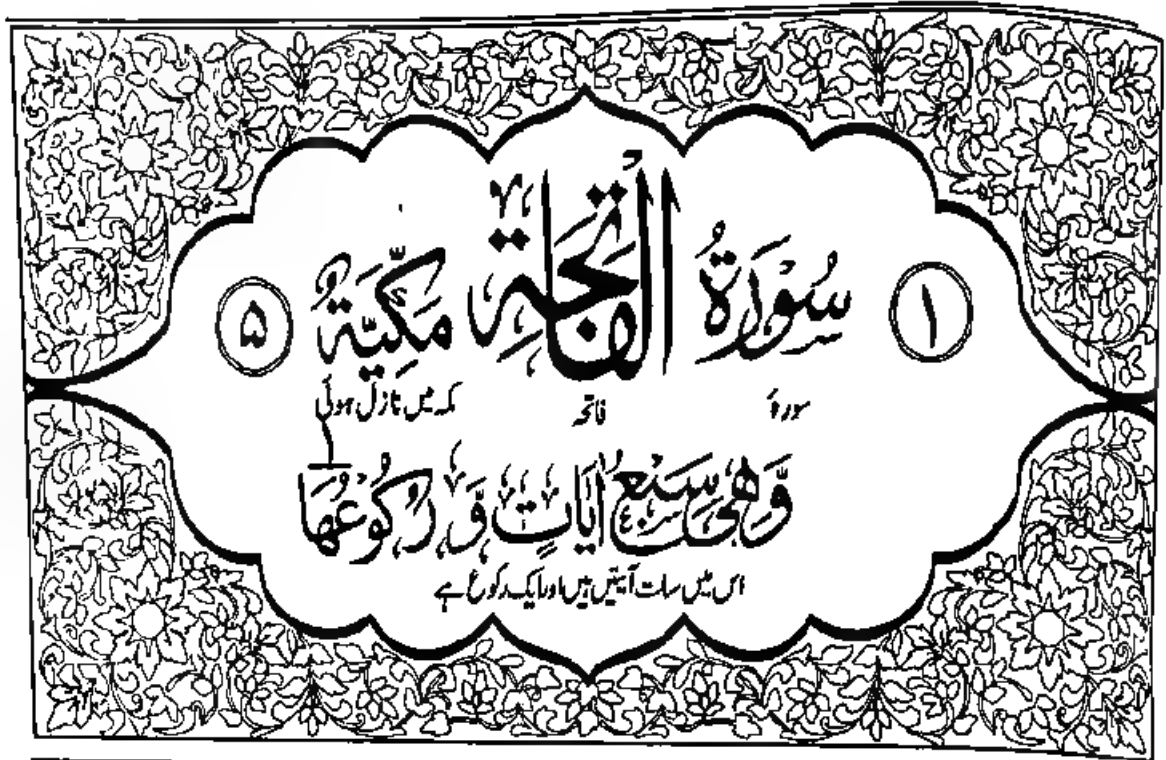 ۱ سُوْرَةُ الْفَاتِحَةِ مَكِّيَّةٌ ۵
سورۂ فاتحہ مکہ میں نازل ہوئی
وَّهِیَ سَبْعُ اٰيَاتٍ وَّ رُكُوْعُهَا ۱
اس میں سات آیتیں ہیں اور ایک رکوع ہے